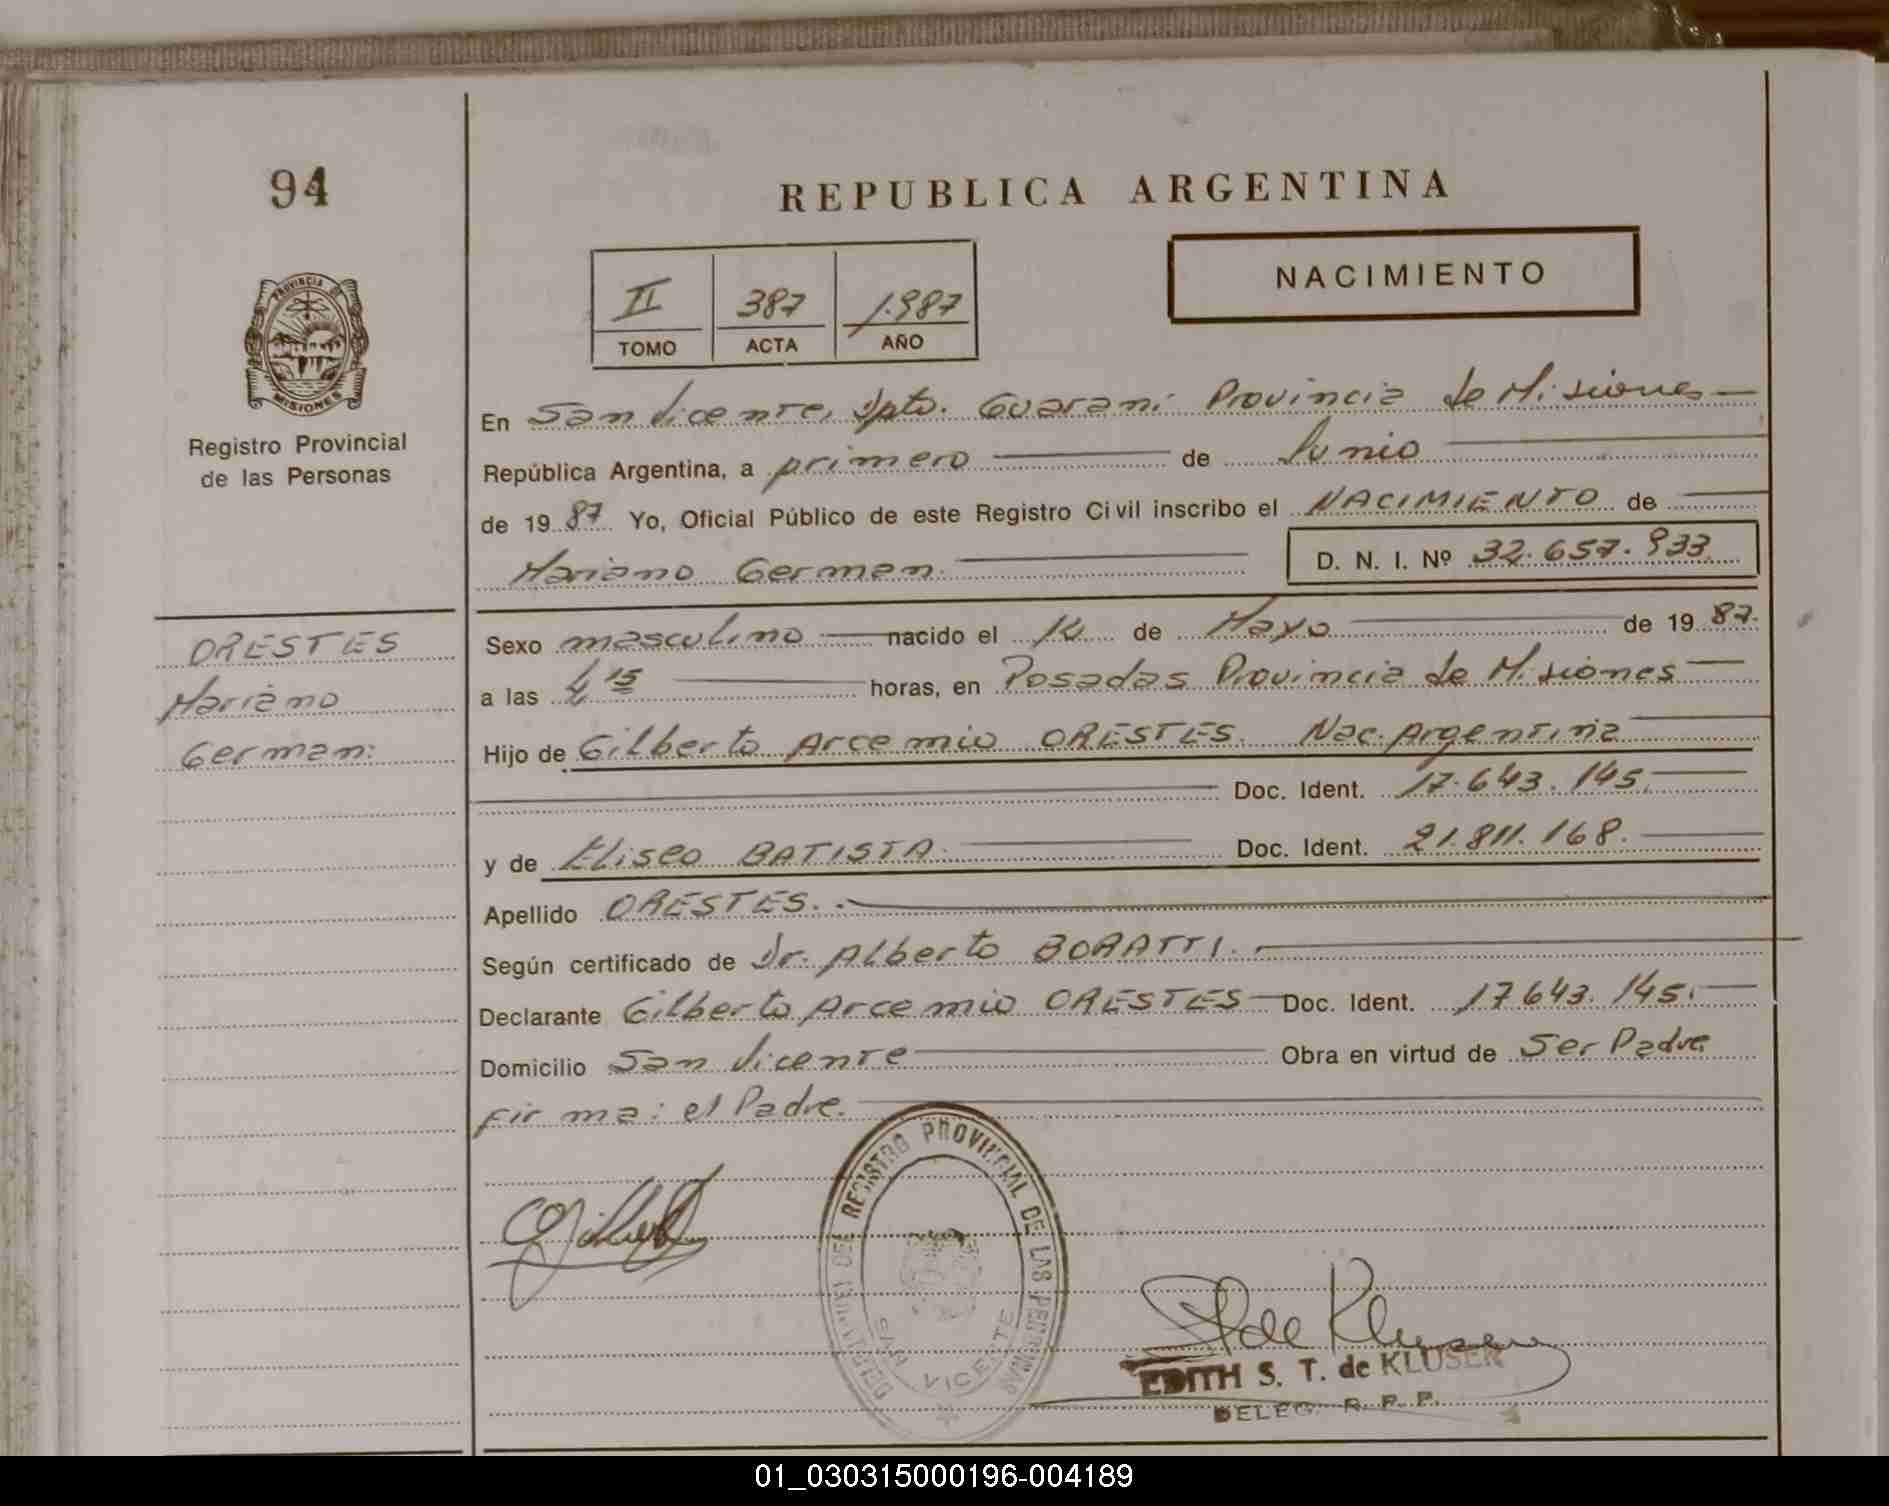 94
REPUBLICA ARGENTINA
NACIMIENTO
II 387 1.987
TOMO ACTA AÑO
PROVINCIA DE
MISIONES
Registro Provincial
de las Personas
En San Vicente, Dpto. Guarani Provincia de Misiones
República Argentina, a primero de Junio
de 1987 Yo, Oficial Público de este Registro Civil inscribo el NACIMIENTO de
Mariano German D. N. I. Nº 32.657.933
ORESTES
Mariano
German:
Sexo masculino nacido el 14 de Mayo de 1987.
a las 4 15 horas, en Posadas Provincia de Misiones
Hijo de Gilberto Arcemio ORESTES. Nac. Argentina
Doc. Ident. 17.643.145.
y de Eliseo BATISTA. Doc. Ident. 21.811.168.
Apellido ORESTES.
Según certificado de Dr. Alberto BORATTI.
Declarante Gilberto Arcemio ORESTES Doc. Ident. 17643.145.
Domicilio San Vicente Obra en virtud de Ser Padre
Firma: el Padre.
DEL REGISTRO PROVINCIAL DE LAS PERSONAS
SAN VICENTE
de Kluser
EDITH S. T. de KLUSER
DELEG. R. P. P.
01_030315000196-004189